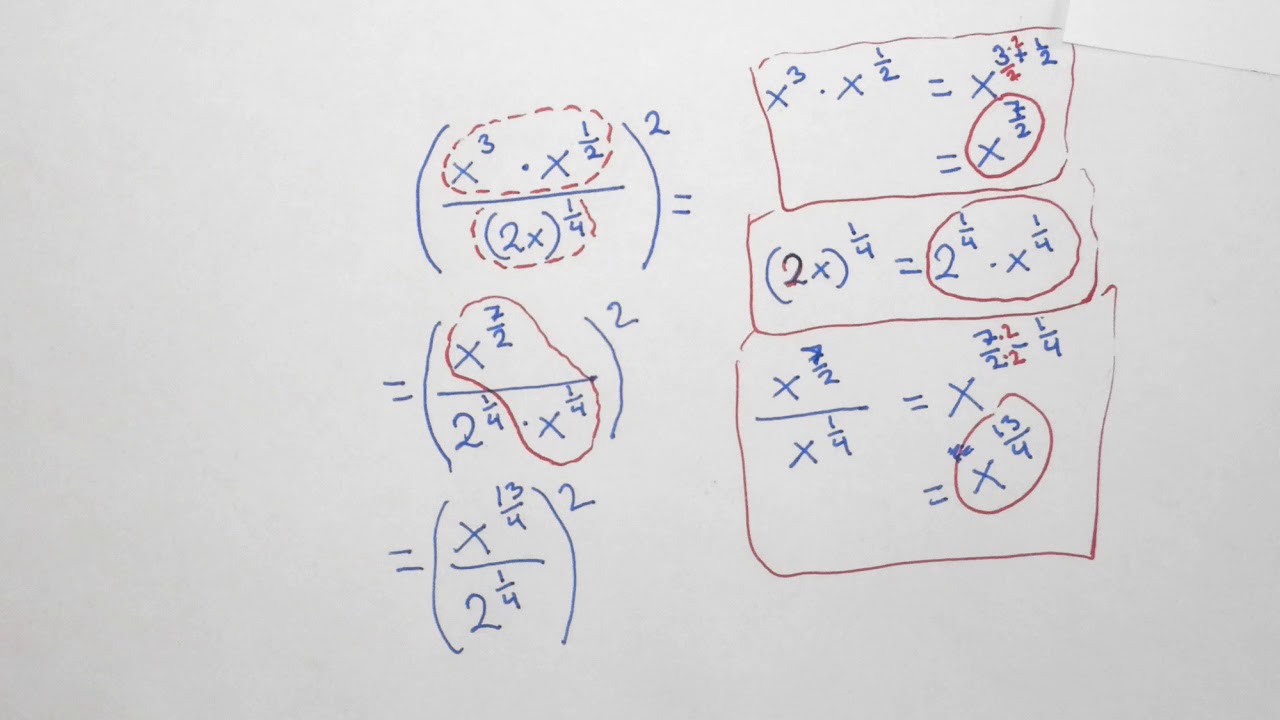 (x^3 · x^(1/2) / (2x)^(1/4))^2 =
= (x^(7/2) / (2^(1/4) · x^(1/4)))^2
= (x^(13/4) / 2^(1/4))^2
x^3 · x^(1/2) = x^(3·2/2 + 1/2)
= x^(7/2)
(2x)^(1/4) = 2^(1/4) · x^(1/4)
x^(7/2) / x^(1/4) = x^(7·2/2·2 - 1/4)
= x^(13/4)